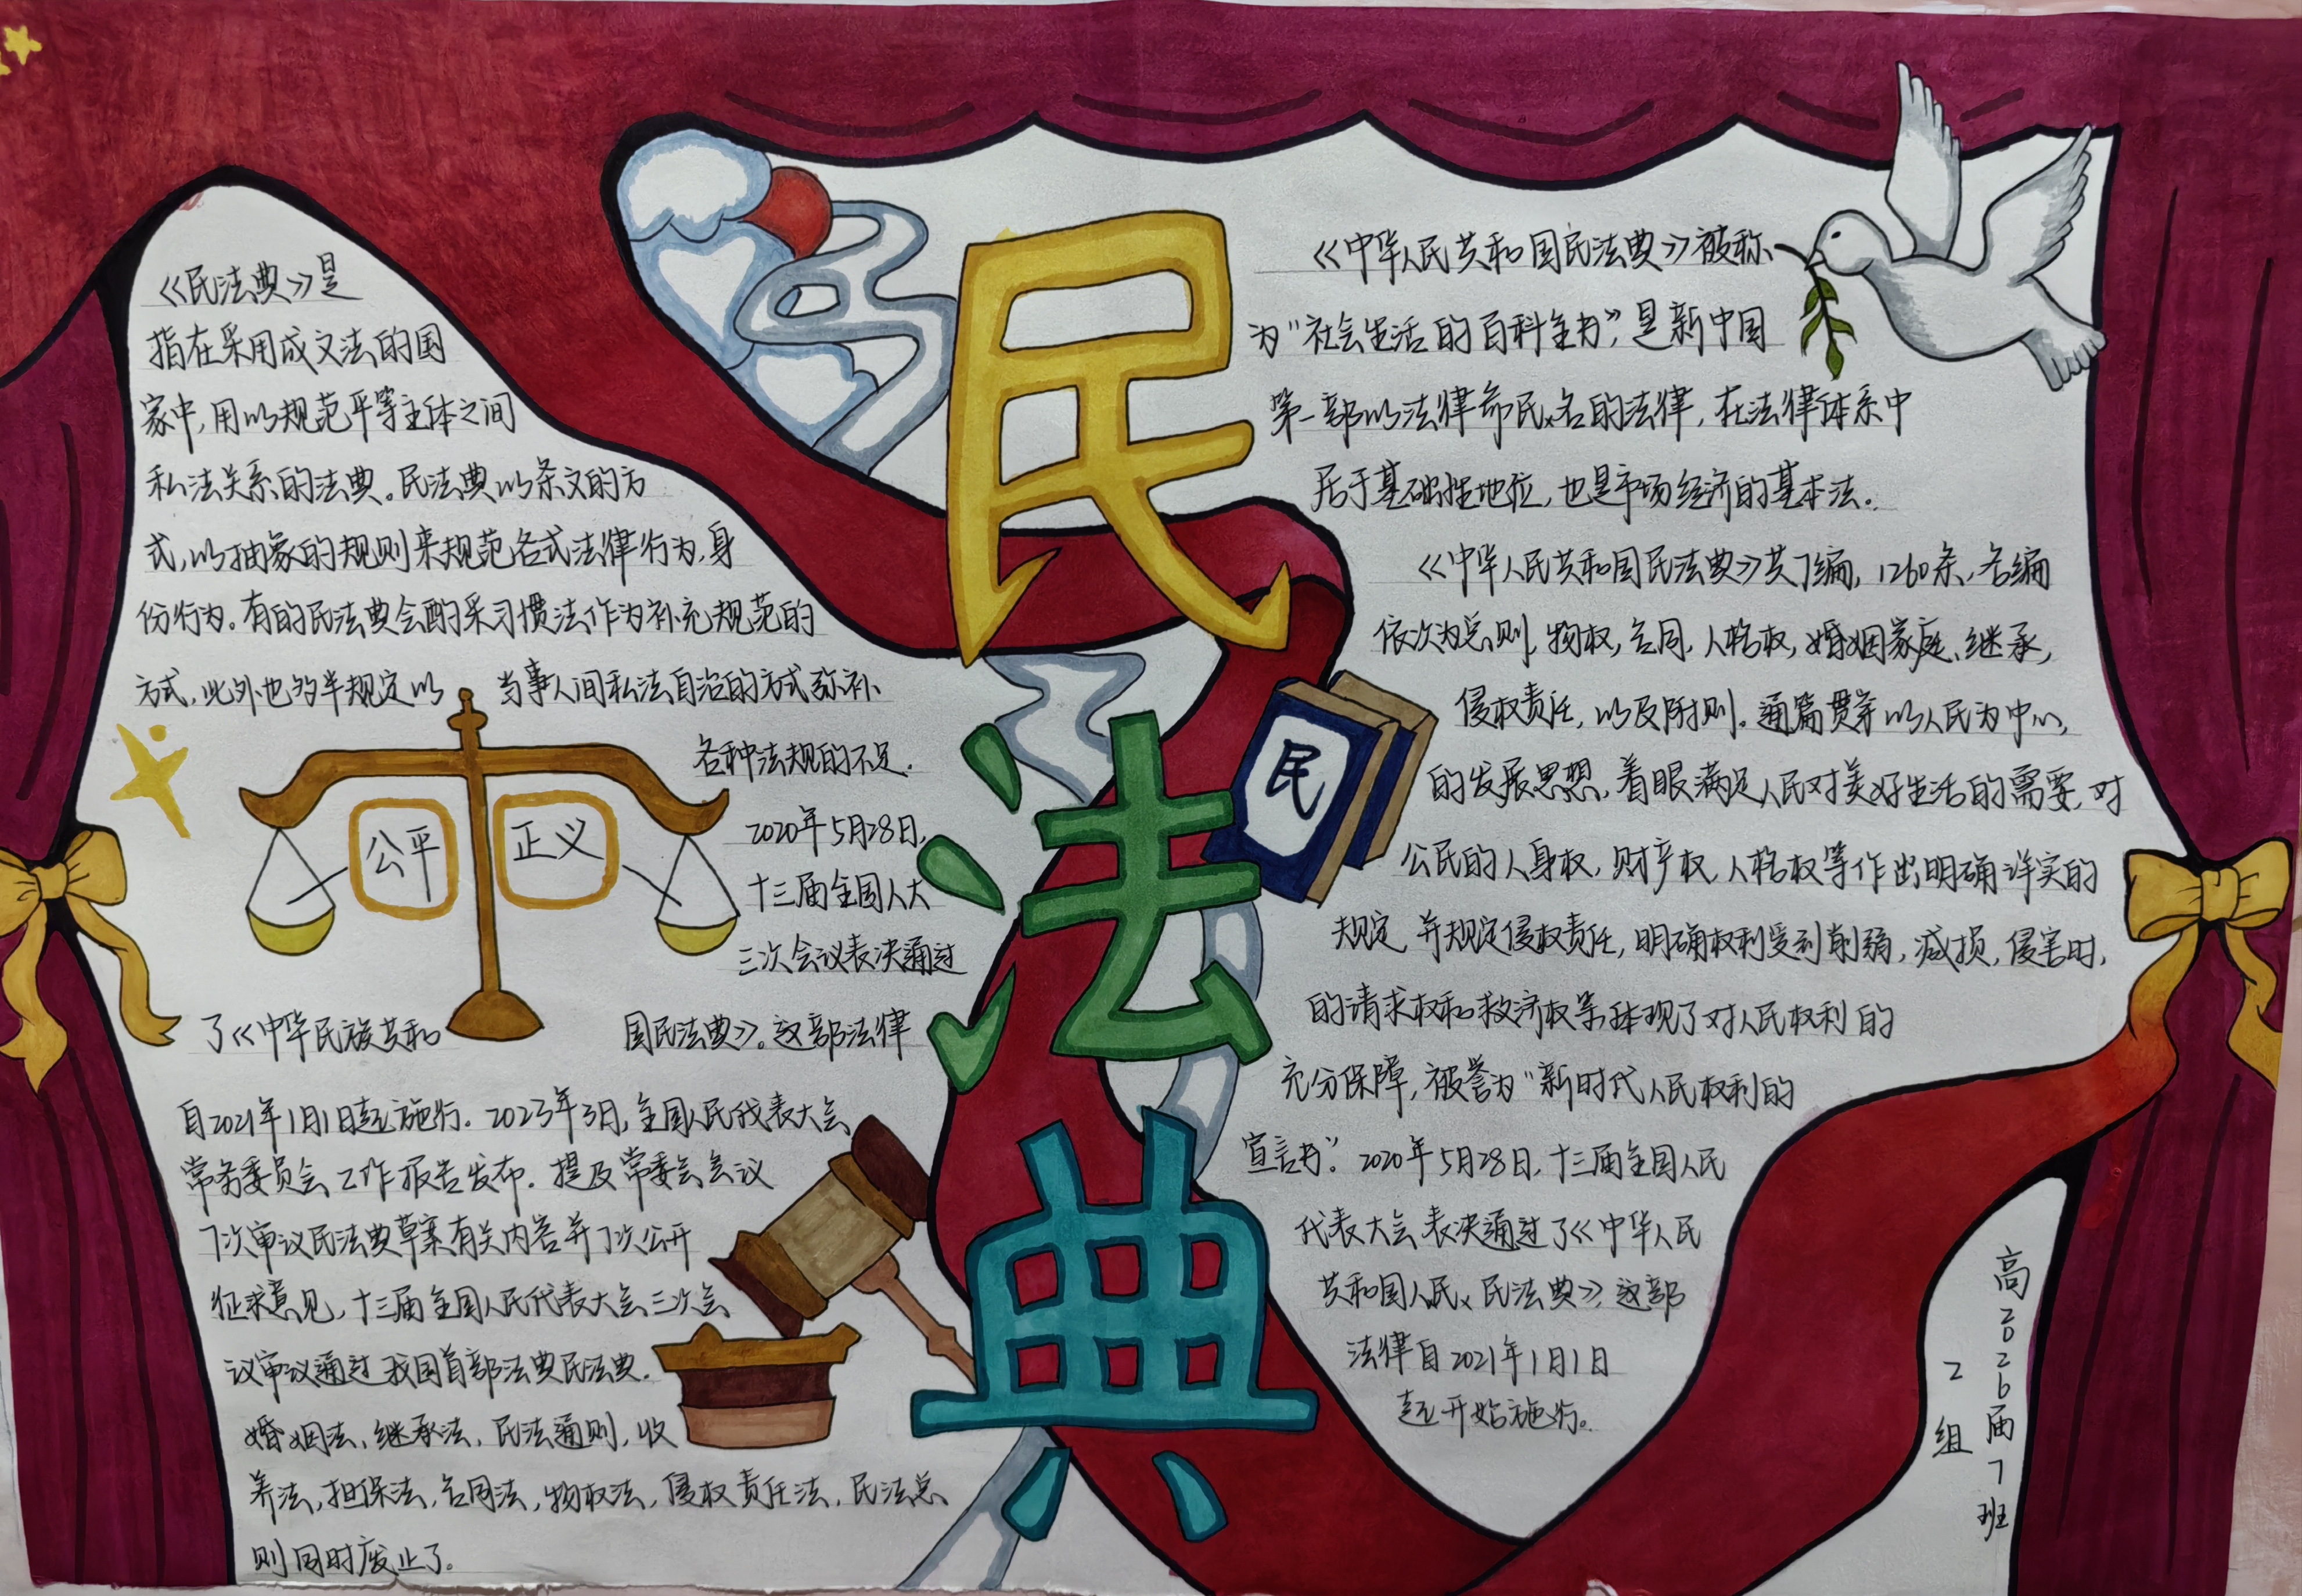 《民法典》是
指在采用成文法的国
家中,用以规范平等主体之间
私法关系的法典。民法典以条文的方
式,以抽象的规则来规范各式法律行为,身
份行为。有的民法典会酌采习惯法作为补充规范的
方式,此外也多半规定以 当事人间私法自治的方式弥补
各种法规的不足.
公平
正义
2020年5月28日,
十三届全国人大
三次会议表决通过
了《中华民族共和 国民法典》。这部法律
自2021年1月1日起施行. 2023年3月,全国人民代表大会
常务委员会工作报告发布. 提及常委会会议
7次审议民法典草案有关内容并7次公开
征求意见,十三届全国人民代表大会三次会
议审议通过我国首部法典民法典.
婚姻法,继承法,民法通则,收
养法,担保法,合同法,物权法,侵权责任法,民法总
则同时废止了.
民
法
典
民
《中华人民共和国民法典》被称
为“社会生活的百科全书”,是新中国
第一部以法律命民名的法律,在法律体系中
居于基础性地位,也是市场经济的基本法.
《中华人民共和国民法典》共7编,1260条,各编
依次为总则,物权,合同,人格权,婚姻家庭、继承,
侵权责任,以及附则。通篇贯穿以人民为中心,
的发展思想,着眼满足人民对美好生活的需要,对
公民的人身权,财产权,人格权等作出明确详实的
规定,并规定侵权责任,明确权利受到削弱,减损,侵害时,
的请求权和救济权等,体现了对人民权利的
充分保障,被誉为“新时代人民权利的
宣言书”. 2020年5月28日,十三届全国人民
代表大会表决通过了《中华人民
共和国人民民法典》,这部
法律自2021年1月1日
起开始施行。
高2026届7班
2组